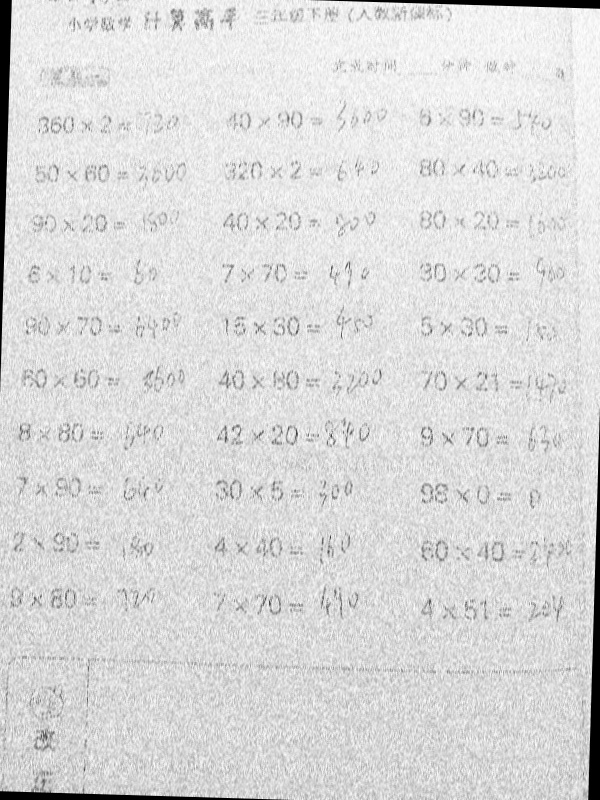 小学数学 计算高手 三年级下册(人教新课标)
完成时间
360×2=720 40×90=3600 6×90=540
50×60=3000 320×2=640 80×40=3200
90×20=1800 40×20=800 80×20=1600
6×10=60 7×70=490 30×30=900
90×70=6400 15×30=450 5×30=150
60×60=3600 40×80=3200 70×21=1470
8×80=640 42×20=840 9×70=630
7×90=640 30×5=300 98×0=0
2×90=180 4×40=160 60×40=2400
9×80=720 7×70=490 4×51=204
改
正